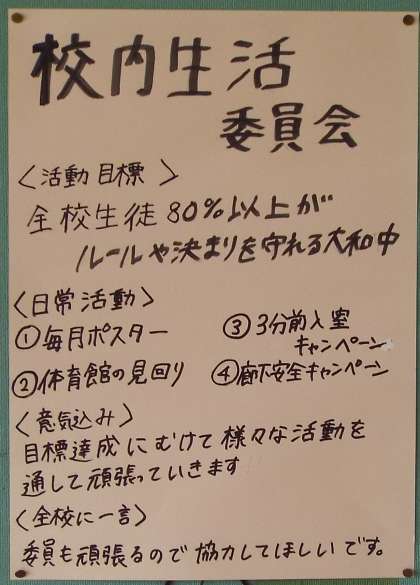 校内生活
委員会
〈活動目標〉
全校生徒80%以上が
ルールや決まりを守れる大和中
〈日常活動〉
①毎月ポスター
③3分前入室
キャンペーン
②体育館の見回り
④廊下安全キャンペーン
〈意気込み〉
目標達成にむけて様々な活動を
通して頑張っていきます
〈全校に一言〉
委員も頑張るので協力してほしいです。